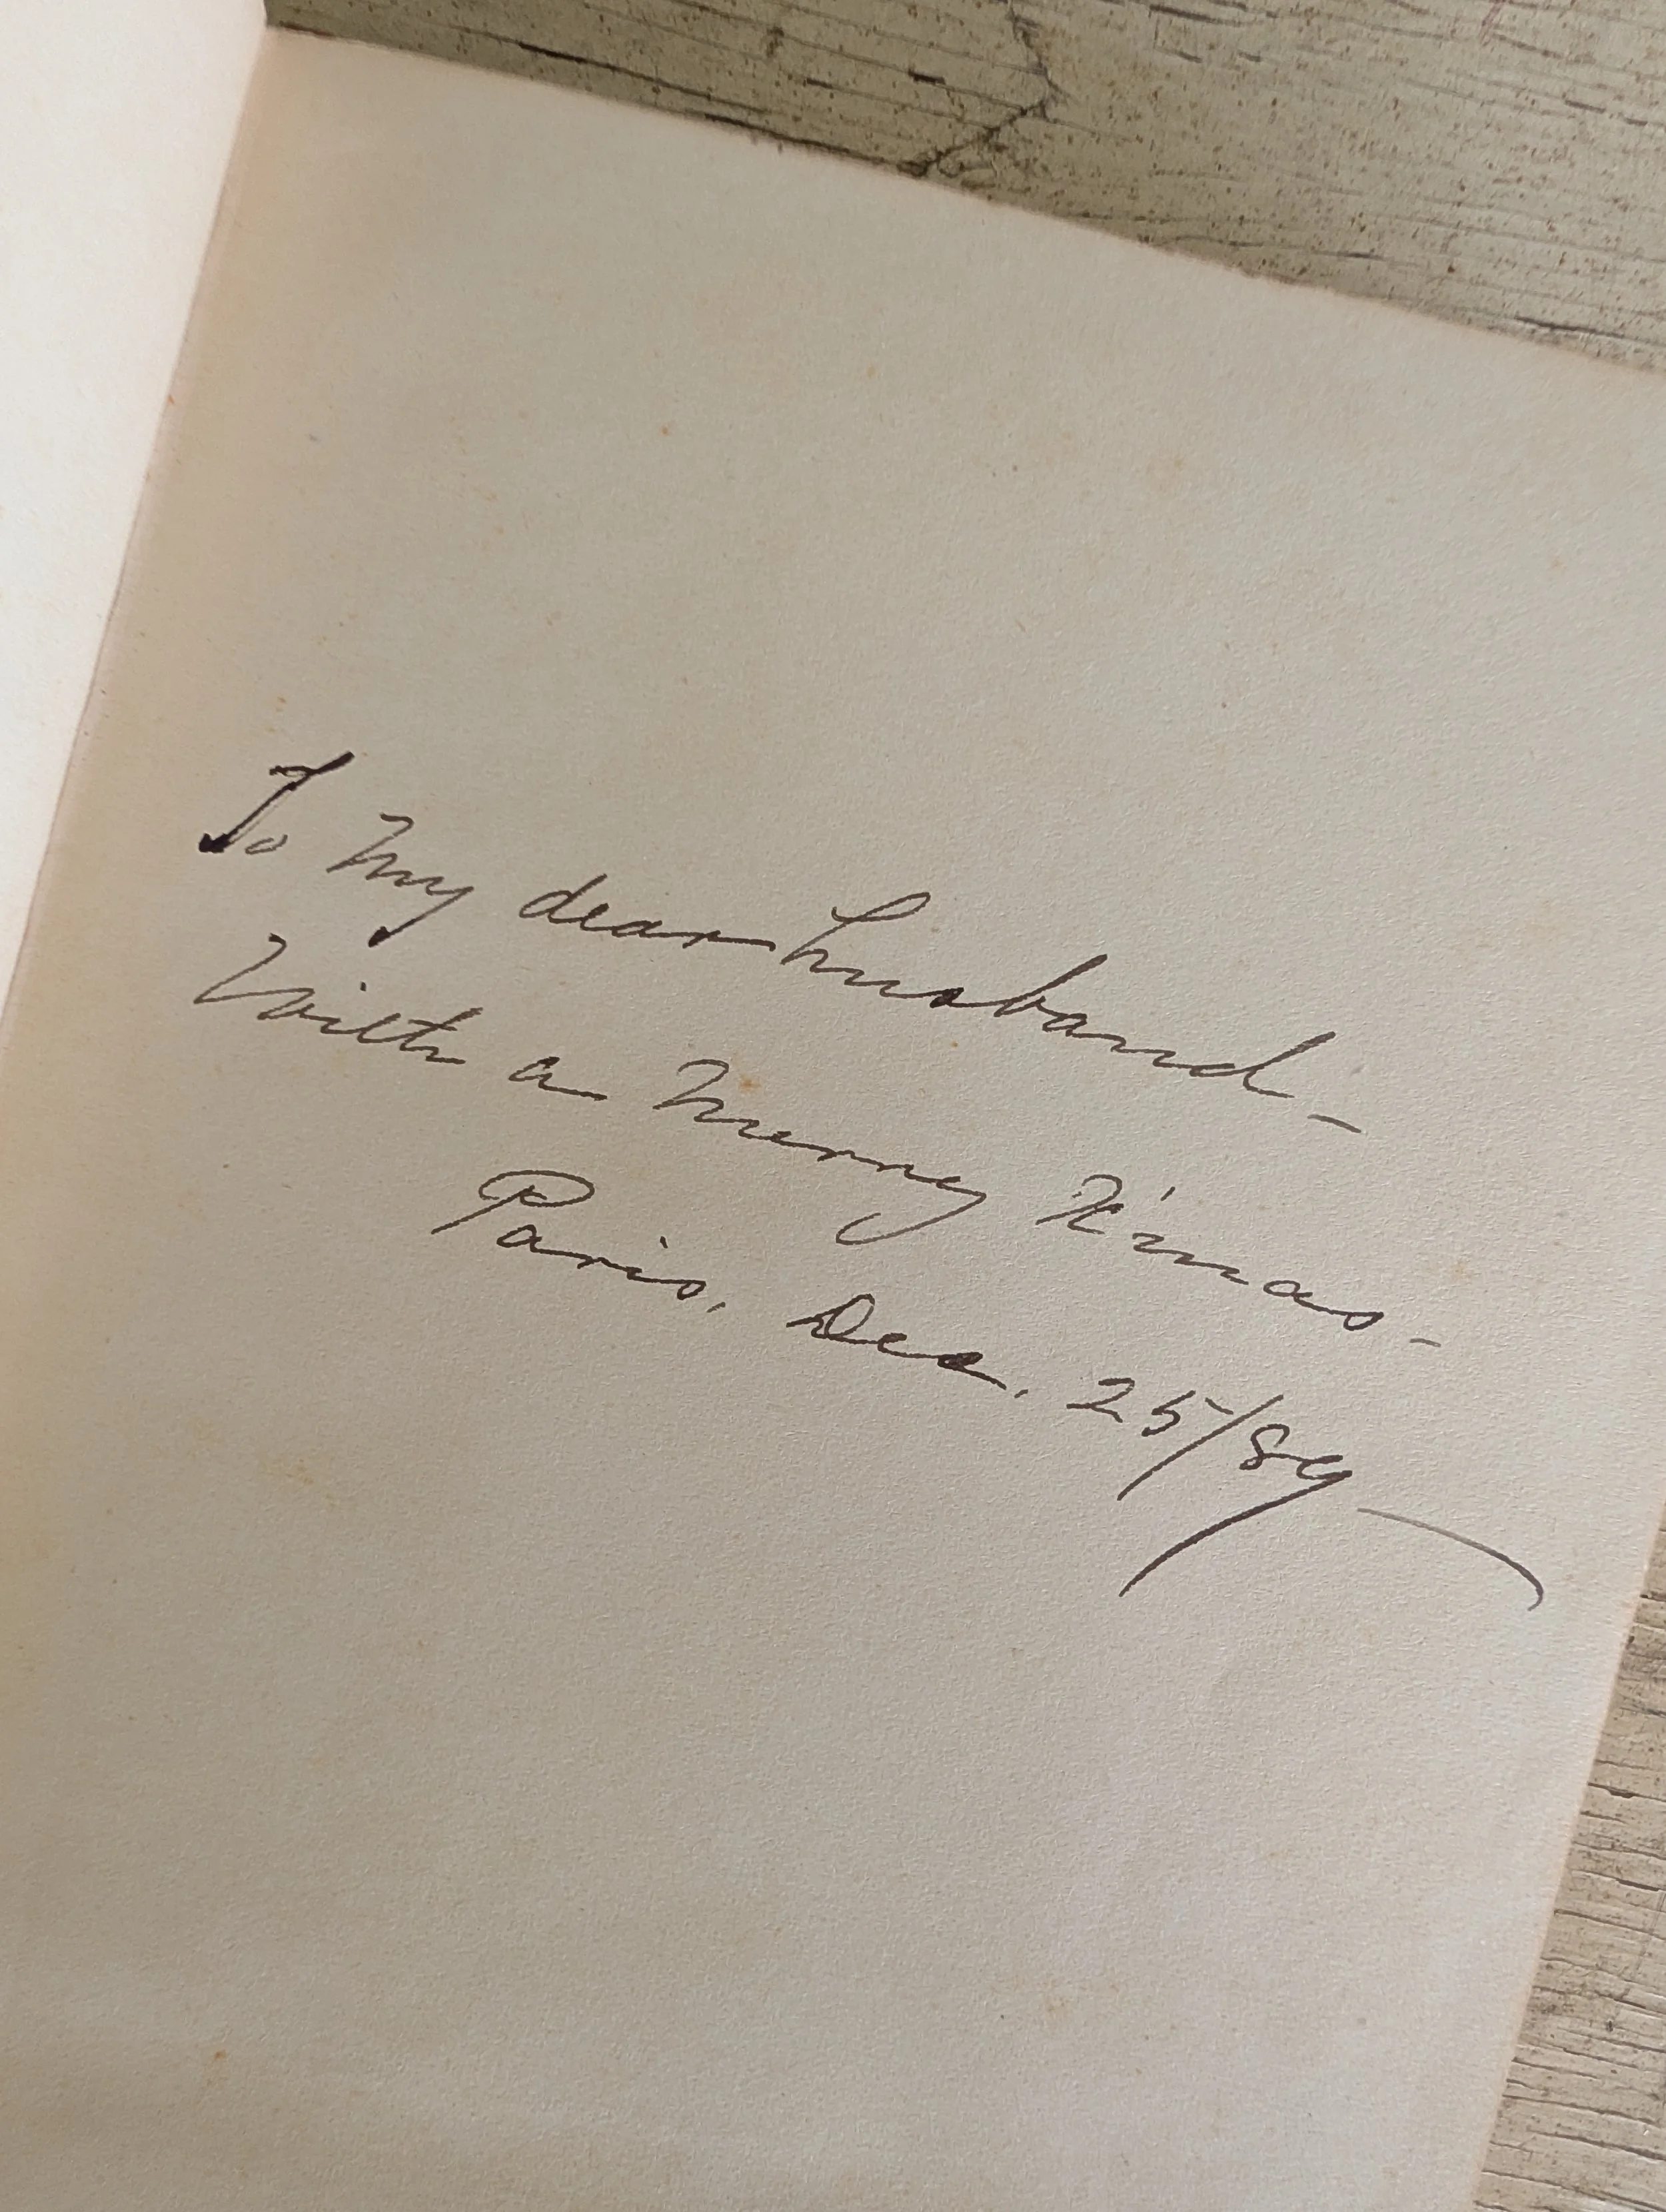 To my dear husband -
With a Merry X'mas -
Paris, Dec. 25/89